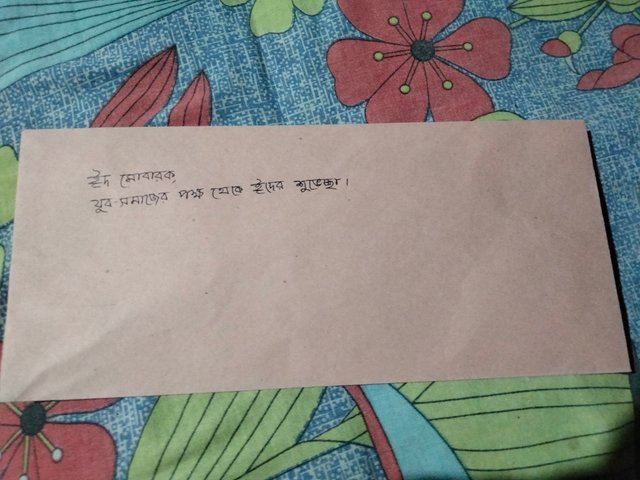 ঈদ মোবারক,
যুব-সমাজের পক্ষ থেকে ঈদের শুভেচ্ছা।